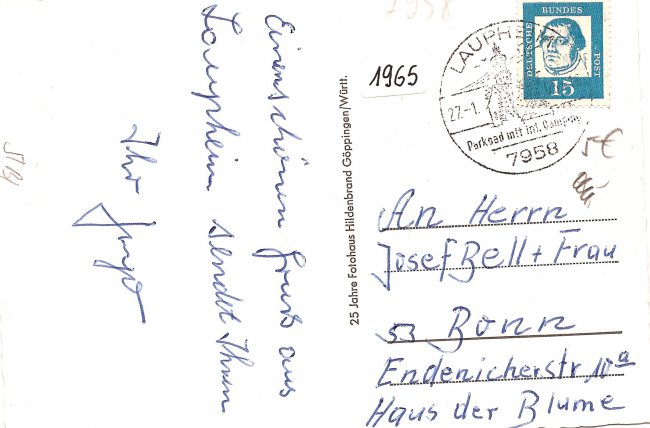 Einen schönen Gruß aus
Laupheim sendet Ihnen
Ihr
25 Jahre Fotohaus Hildenbrand Göppingen/Württ.
7958
1965
LAUPHEIM
27.-1.
Parkbad mit int. Camping
7958
DEUTSCHE
BUNDES
POST
15
5€
An Herrn
Josef Bell + Frau
53 Bonn
Endenicherstr 10a
Haus der Blume